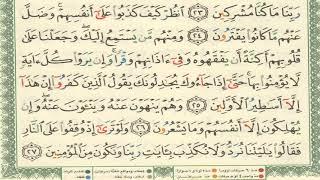 رَبِّنَا مَا كُنَّا مُشْرِكِينَ ٢٣ ٱنظُرْ كَيْفَ كَذَبُوا۟ عَلَىٰٓ أَنفُسِهِمْ ۚ وَضَلَّ
عَنْهُم مَّا كَانُوا۟ يَفْتَرُونَ ٢٤ وَمِنْهُم مَّن يَسْتَمِعُ إِلَيْكَ ۖ وَجَعَلْنَا عَلَىٰ
قُلُوبِهِمْ أَكِنَّةً أَن يَفْقَهُوهُ وَفِىٓ ءَاذَانِهِمْ وَقْرًا ۚ وَإِن يَرَوْا۟ كُلَّ ءَايَةٍ
لَّا يُؤْمِنُوا۟ بِهَا ۚ حَتَّىٰٓ إِذَا جَآءُوكَ يُجَـٰدِلُونَكَ يَقُولُ ٱلَّذِينَ كَفَرُوٓا۟ إِنْ هَـٰذَآ
إِلَّآ أَسَـٰطِيرُ ٱلْأَوَّلِينَ ٢٥ وَهُمْ يَنْهَوْنَ عَنْهُ وَيَنْـَٔوْنَ عَنْهُ ۖ وَإِن
يُهْلِكُونَ إِلَّآ أَنفُسَهُمْ وَمَا يَشْعُرُونَ ٢٦ وَلَوْ تَرَىٰٓ إِذْ وُقِفُوا۟ عَلَى ٱلنَّارِ
فَقَالُوا۟ يَـٰلَيْتَنَا نُرَدُّ وَلَا نُكَذِّبَ بِـَٔايَـٰتِ رَبِّنَا وَنَكُونَ مِنَ ٱلْمُؤْمِنِينَ ٢٧